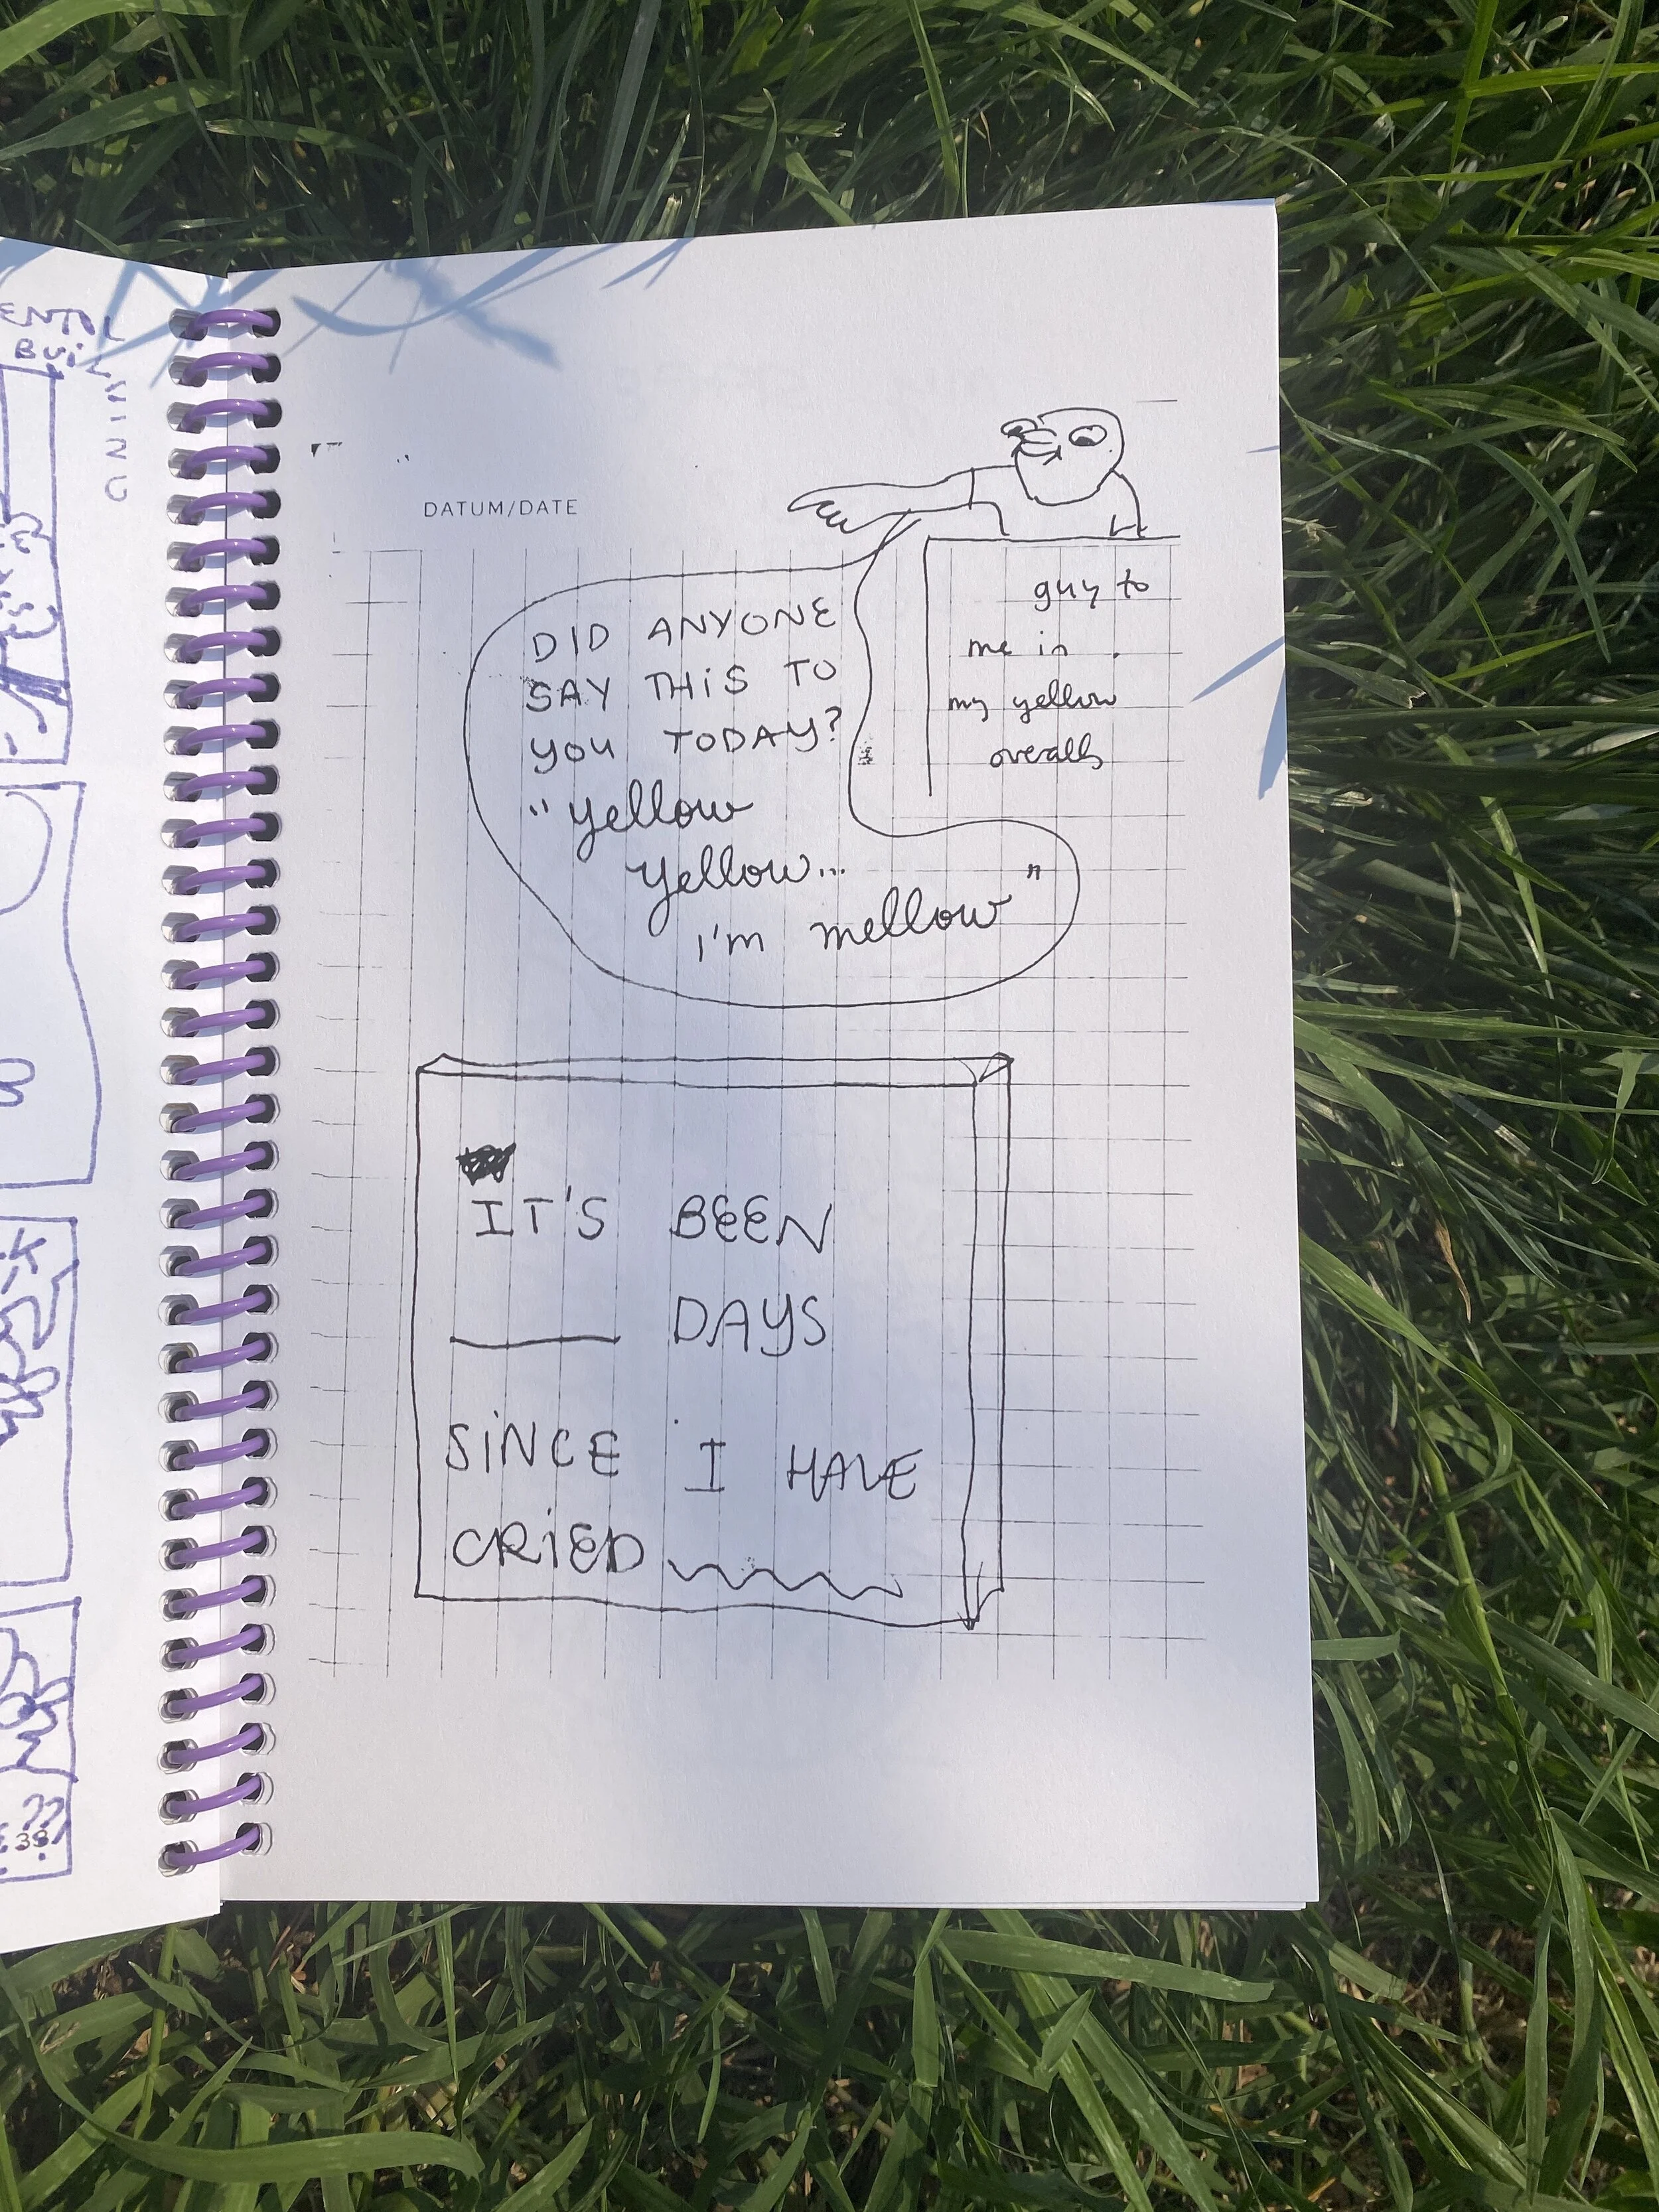 DATUM/DATE
DID ANYONE
SAY THIS TO
YOU TODAY?
"yellow
yellow...
I'm mellow"
guy to
me in
my yellow
overalls
IT'S BEEN
____ DAYS
SINCE I HAVE
CRIED
38